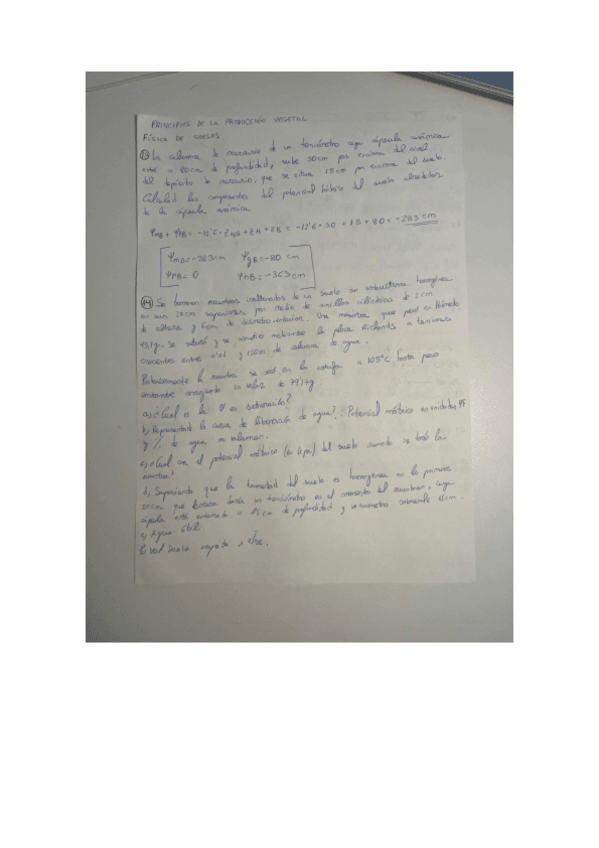 PRINCIPIOS DE LA PRODUCCIÓN VEGETAL
FÍSICA DE SUELOS
13 La columna de mercurio de un tensiómetro cuya cápsula cerámica
está a 80cm de profundidad, sube 30cm por encima del nivel
del depósito de mercurio, que se sitúa 15cm por encima del suelo.
Calculad los componentes del potencial hídrico del suelo alrededor
de la cápsula cerámica.
= -12'6·30 + 15 + 80 = -283 cm
ΨmB = -283cm ΨgB = -80 cm
ΨPB = 0 ΨhB = -363cm
14 Se toman muestras inalteradas de un suelo de estructura homogénea
en sus 20cm superiores por medio de anillos cilíndricos de 2cm
de altura y 6cm de diámetro interior. Una muestra que pesó en
se saturó y se mediante la placa Richards a tensiones
crecientes entre y de columna de agua.
Posteriormente la muestra se secó en la estufa a 105°C hasta peso
constante un valor de 79'17g
a) ¿Cual es la θ en saturación?
b) Representad la curva de liberación de agua? Potencial mátrico en unidades PF
y % de agua en volumen.
c) ¿Cual era el potencial mátrico (en kpa) del suelo cuando se tomó la
muestra?
d) Suponiendo que la humedad del suelo es homogénea en los primeros
20cm que lectura daría un tensiómetro en el momento del muestreo, cuya
cápsula está enterrada a 15cm de profundidad y vacuómetro 15cm.
e) Agua útil